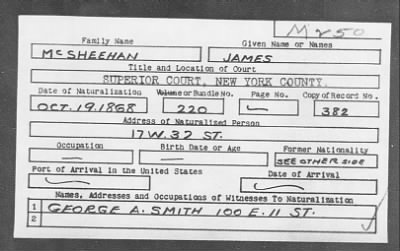 M250
Family Name Given Name or Names
McSHEEHAN JAMES
Title and Location of Court
SUPERIOR COURT, NEW YORK COUNTY.
Date of Naturalization Volume or Bundle No. Page No. Copy of Record No.
OCT. 19. 1868 220 — 382
Address of Naturalized Person
17 W. 32 ST.
Occupation Birth Date or Age Former Nationality
— — SEE OTHER SIDE
Port of Arrival in the United States Date of Arrival
Names, Addresses and Occupations of Witnesses To Naturalization
1 GEORGE A. SMITH 100 E. 11 ST.
2